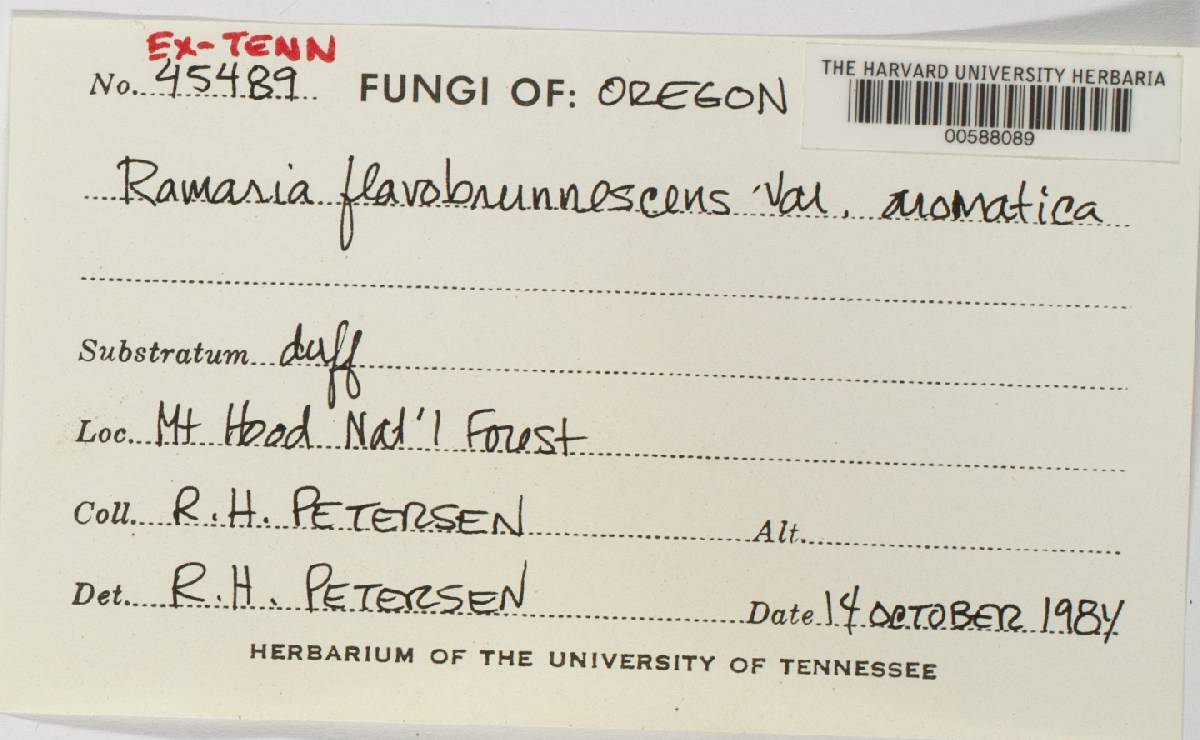 EX-TENN
No. 45489 FUNGI OF: OREGON
THE HARVARD UNIVERSITY HERBARIA
00588089
Ramaria flavobrunnescens var. aromatica
Substratum duff
Loc. Mt Hood Nat'l Forest
Coll. R.H. PETERSEN Alt.
Det. R.H. PETERSEN Date 14 OCTOBER 1984
HERBARIUM OF THE UNIVERSITY OF TENNESSEE